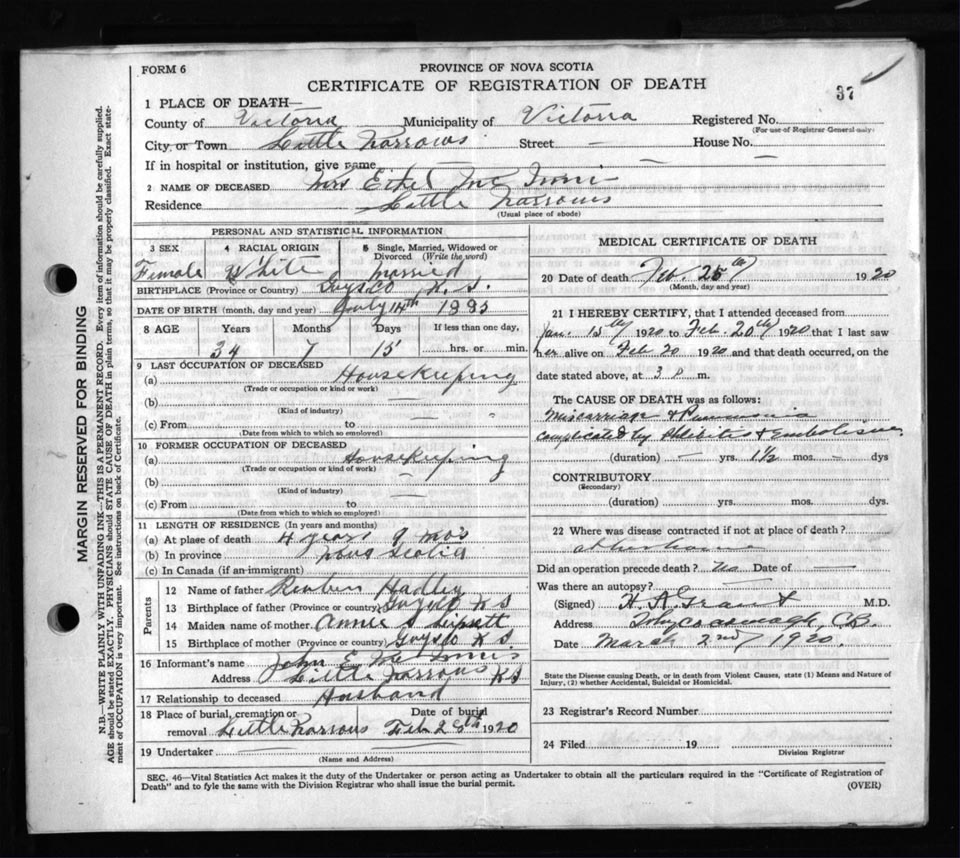 FORM 6
PROVINCE OF NOVA SCOTIA
CERTIFICATE OF REGISTRATION OF DEATH
37
1 PLACE OF DEATH—
County of Victoria Municipality of Victoria Registered No.
(For use of Registrar General only)
City or Town Little Narrows Street — House No. —
If in hospital or institution, give name — —
2 NAME OF DECEASED Mrs Ethel
Residence Little Narrows
(Usual place of abode)
PERSONAL AND STATISTICAL INFORMATION
3 SEX 4 RACIAL ORIGIN 5 Single, Married, Widowed or Divorced (Write the word)
Female White Married
BIRTHPLACE (Province or Country) Guysco N. S.
DATE OF BIRTH (month, day and year) July 14th 1885
8 AGE Years Months Days If less than one day,
34 7 15 hrs. or min.
9 LAST OCCUPATION OF DECEASED
(a) Housekeeping
(Trade or occupation or kind or work)
(b) —
(Kind of industry)
(c) From — to — "
(Date from which to which so employed)
10 FORMER OCCUPATION OF DECEASED
(a) Housekeeping
(Trade or occupation or kind of work)
(b) —
(Kind of industry)
(c) From to —
(Date from which to which so employed)
11 LENGTH OF RESIDENCE (In years and months)
(a) At place of death 4 years 9 mo's
(b) In province Nova Scotia
(c) In Canada (if an immigrant)
Parents
12 Name of father Reuben Hadley
13 Birthplace of father (Province or country) Guysco N S
14 Maiden name of mother Annie S
15 Birthplace of mother (Province or country) Guysco N S.
16 Informant's name John E. McInnis
Address Little Narrows N S
17 Relationship to deceased Husband
18 Place of burial, cremation or removal Date of burial
Little Narrows Feb 28th 1920
19 Undertaker —
(Name and Address)
MEDICAL CERTIFICATE OF DEATH
20 Date of death Feb. 25th 1920
(Month, day and year)
21 I HEREBY CERTIFY, that I attended deceased from
Jan. 15th 1920 to Feb. 20th 1920 that I last saw
her alive on Feb 20 1920 and that death occurred, on the
date stated above, at 3 P m.
The CAUSE OF DEATH was as follows:
Miscarriage & Pneumonia
complicated by Phlebitis & Embolism.
(duration) — yrs. 1½ mos. — dys
CONTRIBUTORY
(Secondary)
(duration) yrs. mos. dys.
22 Where was disease contracted if not at place of death?
at her home
Did an operation precede death? No Date of —
Was there an autopsy? —
(Signed) H. A. Grant M.D.
Address Whycocomagh, C.B.
Date March 2nd 1920.
State the Disease causing Death, or in death from Violent Causes, state (1) Means and Nature of Injury, (2) whether Accidental, Suicidal or Homicidal.
23 Registrar's Record Number
24 Filed 19
Division Registrar
SEC. 46—Vital Statistics Act makes it the duty of the Undertaker or person acting as Undertaker to obtain all the particulars required in the "Certificate of Registration of
Death" and to fyle the same with the Division Registrar who shall issue the burial permit. (OVER)
MARGIN RESERVED FOR BINDING
N.B.—WRITE PLAINLY WITH UNFADING INK—THIS IS A PERMANENT RECORD. Every item of information should be carefully supplied.
AGE should be stated EXACTLY. PHYSICIANS should STATE CAUSE OF DEATH in plain terms, so that it may be properly classified. Exact state-
ment of OCCUPATION is very important. See instructions on back of Certificate.